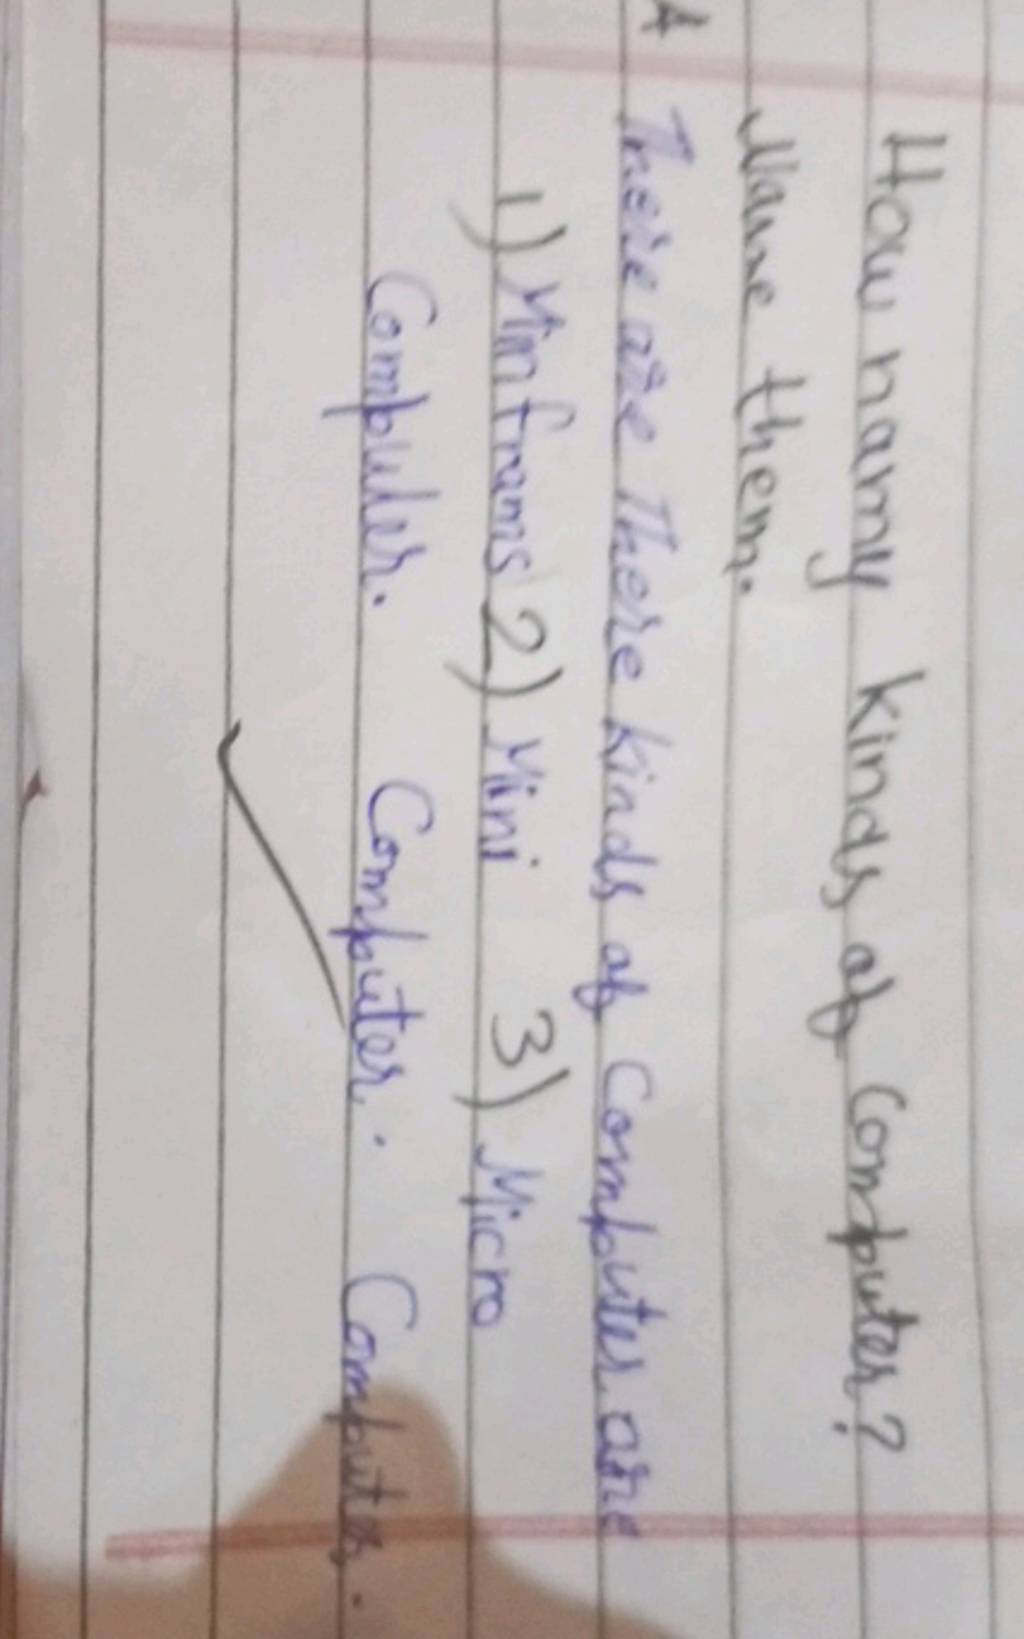 How many kinds of Computer?
Name them.
A There are There kinds of Computer are
1) Minframs 2) Mini 3) Micro
Computer. Computer. Computer.